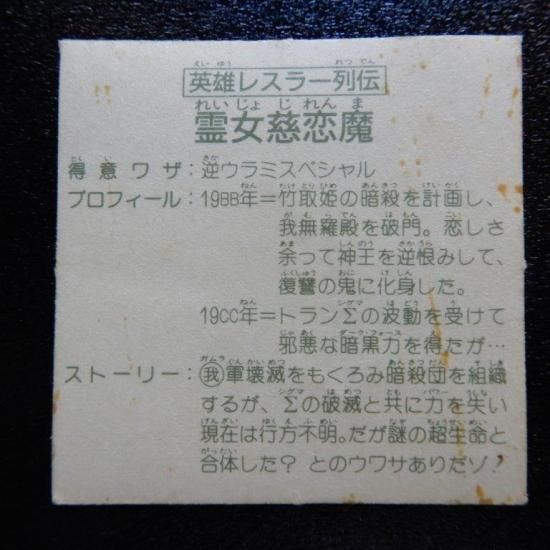 英雄レスラー列伝
霊女慈恋魔
得意ワザ：逆ウラミスペシャル
プロフィール：1988年＝竹取姫の暗殺を計画し、
我無羅殿を破門。恋しさ
余って神王を逆恨みして、
復讐の鬼に化身した。
19CC年＝トランΣの波動を受けて
邪悪な暗黒力を得たが…
ストーリー：㊎軍壊滅をもくろみ暗殺団を組織
するが、Σの破滅と共に力を失い
現在は行方不明。だが謎の超生命と
合体した？とのウワサありだゾ！